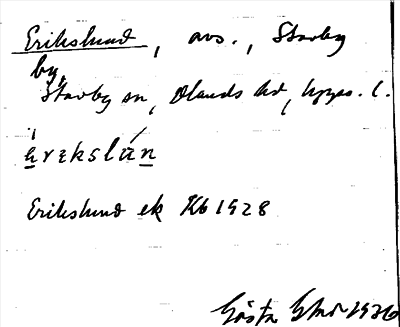 Erikslund, avs., Stavby
by,
Stavby sn, Olands hd, Upps. l.
èrekslún
Erikslund ek Kb 1928
Gösta 1936